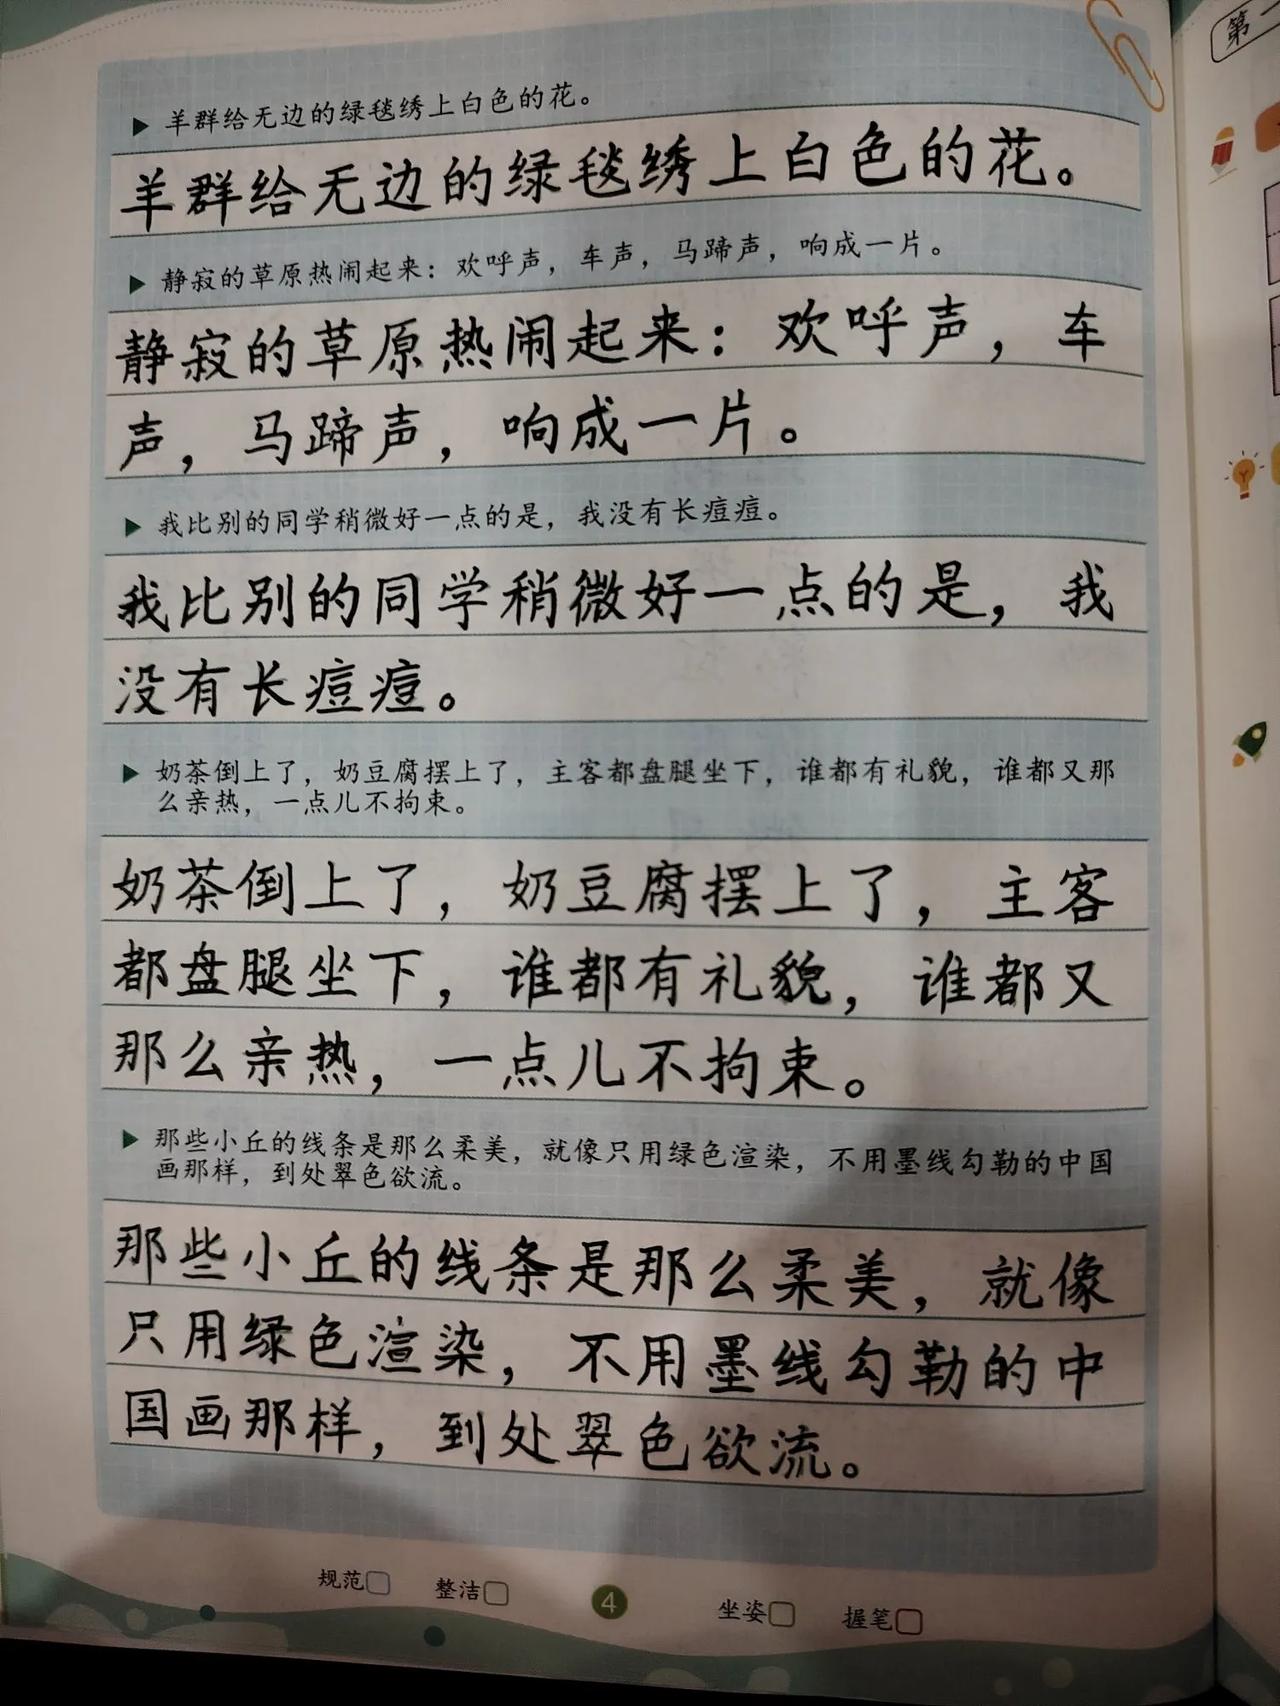 第一
羊群给无边的绿毯绣上白色的花。
羊群给无边的绿毯绣上白色的花。
静寂的草原热闹起来：欢呼声，车声，马蹄声，响成一片。
静寂的草原热闹起来：欢呼声，车
声，马蹄声，响成一片。
我比别的同学稍微好一点的是，我没有长痘痘。
我比别的同学稍微好一点的是，我
没有长痘痘。
奶茶倒上了，奶豆腐摆上了，主客都盘腿坐下，谁都有礼貌，谁都又那
么亲热，一点儿不拘束。
奶茶倒上了，奶豆腐摆上了，主客
都盘腿坐下，谁都有礼貌，谁都又
那么亲热，一点儿不拘束。
那些小丘的线条是那么柔美，就像只用绿色渲染，不用墨线勾勒的中国
画那样，到处翠色欲流。
那些小丘的线条是那么柔美，就像
只用绿色渲染，不用墨线勾勒的中
国画那样，到处翠色欲流。
规范 整洁 4 坐姿 握笔